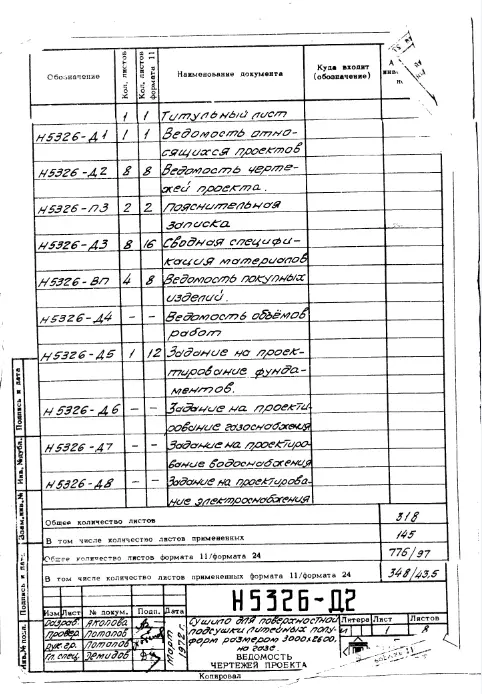 Обозначение Кол. листов Кол. листов формата 11 Наименование документа Куда входит (обозначение)
1 1 Титульный лист
Н5326-Д1 1 1 Ведомость отно-
сящихся проектов
Н5326-Д2 8 8 Ведомость черте-
жей проекта.
Н5326-ПЗ 2 2 Пояснительная
записка
Н5326-Д3 8 16 Сводная специфи-
кация материалов
Н5326-ВП 4 8 Ведомость покупных
изделий.
Н5326-Д4 – – Ведомость объёмов
работ
Н5326-Д5 1 12 Задание на проек-
тирование фунда-
ментов.
Н5326-Д6 – – Задание на проекти-
рование газоснабжения
Н5326-Д7 – – Задание на проектиро-
вание водоснабжения
Н5326-Д8 – – Задание на проектирова-
ние электроснабжения
Общее количество листов 318
В том числе количество листов примененных 145
Общее количество листов формата 11/формата 24 776/97
В том числе количество листов примененных формата 11/формата 24 348/43.5
Н5326-Д2
Изм Лист № докум. Подп. Дата
Разраб. Яколова
Провер. Потапов
Рук. гр. Потапов
Гл. спец. Демидов
Март 1972 г.
Сушило для поверхностной
подсушки литейных полу-
форм размером 3000х2600,
на газе.
ВЕДОМОСТЬ
ЧЕРТЕЖЕЙ ПРОЕКТА
Литера Лист Листов
И 1 8
Копировал
Подпись и дата
Инв. № дубл.
Взам. инв. №
Подпись и дата
Инв. № подл.